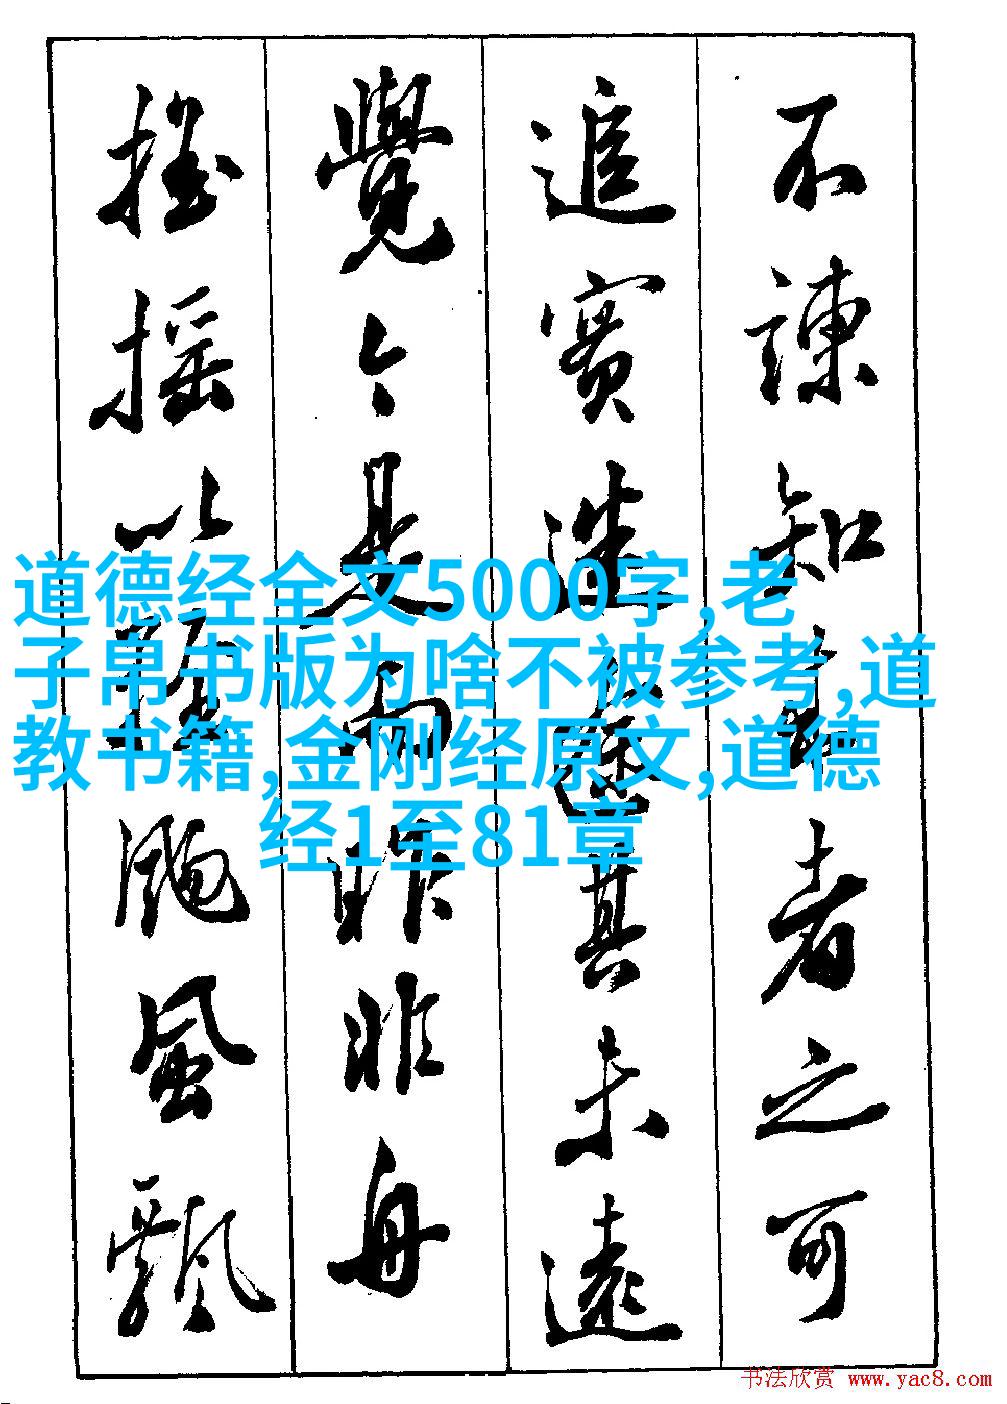 不諫知来者之可
追實迷途其未遠
覺今是而昨非舟
搖搖以輕颺風飄
道德经全文5000字,老
子帛书版为啥不被参考,道
教书籍,金刚经原文,道德
经1至81章
书法欣赏 www.yac8.com